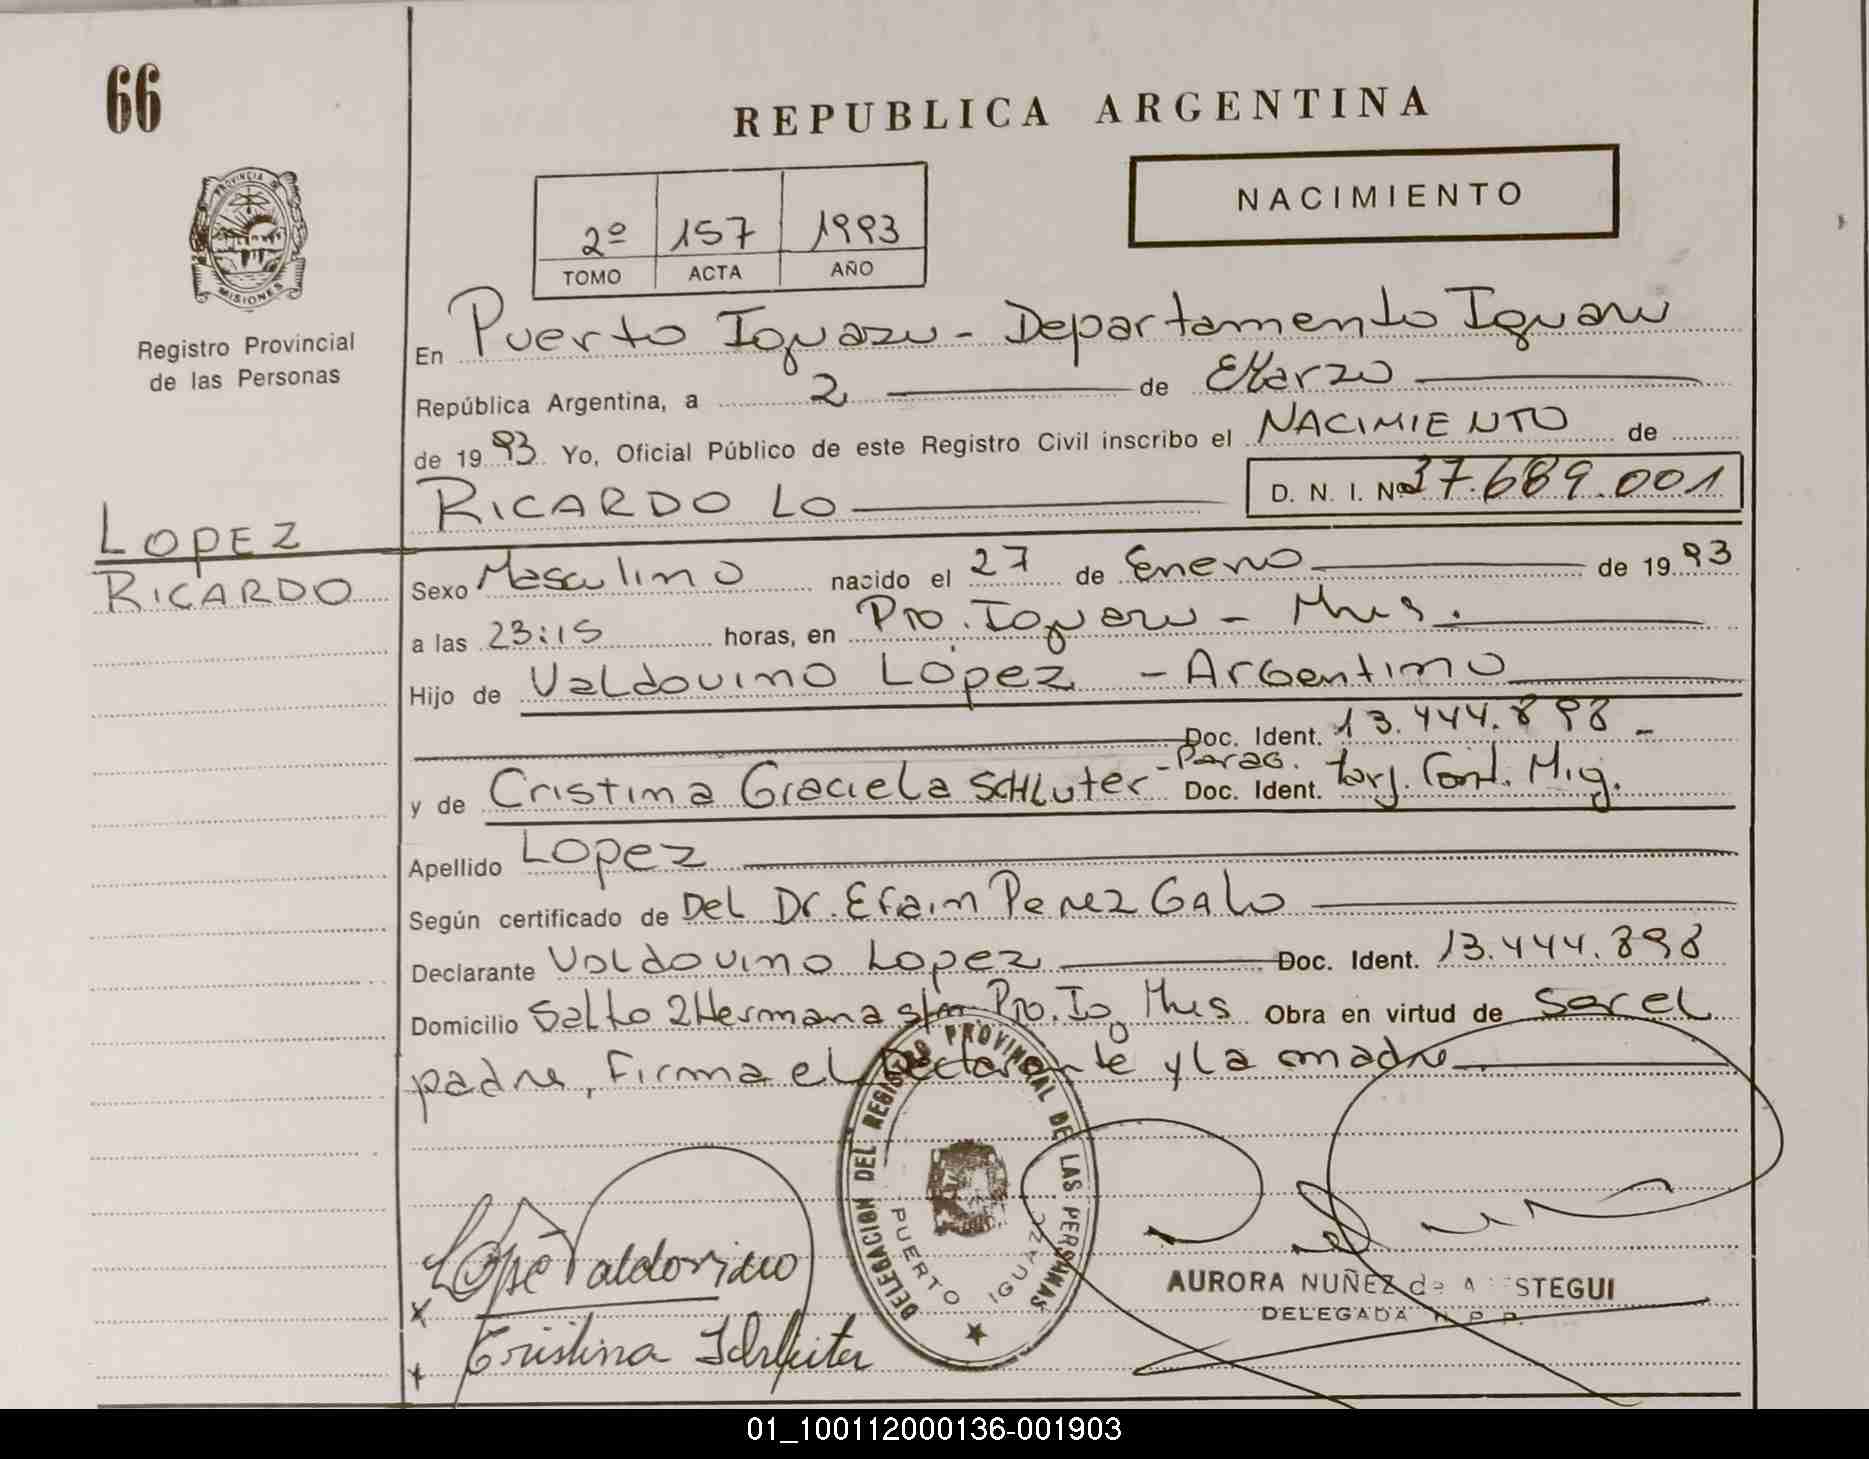 66
REPUBLICA ARGENTINA
PROVINCIA DE MISIONES
Registro Provincial
de las Personas
2º 157 1993
TOMO ACTA AÑO
NACIMIENTO
En Puerto Iguazu - Departamento Iguazu
República Argentina, a 2 de Marzo
de 1993 Yo, Oficial Público de este Registro Civil inscribo el NACIMIENTO de
RICARDO LO D. N. I. Nº 37.689.001
LOPEZ
RICARDO
Sexo Masculino nacido el 27 de Enero de 1993
a las 23:15 horas, en Pto. Iguazu - Mnes.
Hijo de Valdovino López - Argentino
Doc. Ident. 13.444.898 -
y de Cristina Graciela SCHLuter - Parag. Doc. Ident. tarj. Cont. Mig.
Apellido Lopez
Según certificado de Del Dr. Efrain Perez Galo
Declarante Valdovino Lopez Doc. Ident. 13.444.898
Domicilio Salto 2 Hermanas s/n Pto. Ig Mnes Obra en virtud de Ser el
padre, Firma el Declarante y la madre
DELEGACION DEL REGISTRO PROVINCIAL DE LAS PERSONAS
PUERTO IGUAZU
Lopè Valdovino
x
Cristina Schlüter
x
AURORA NUÑEZ de STEGUI
DELEGADA R. P. P.
01_100112000136-001903